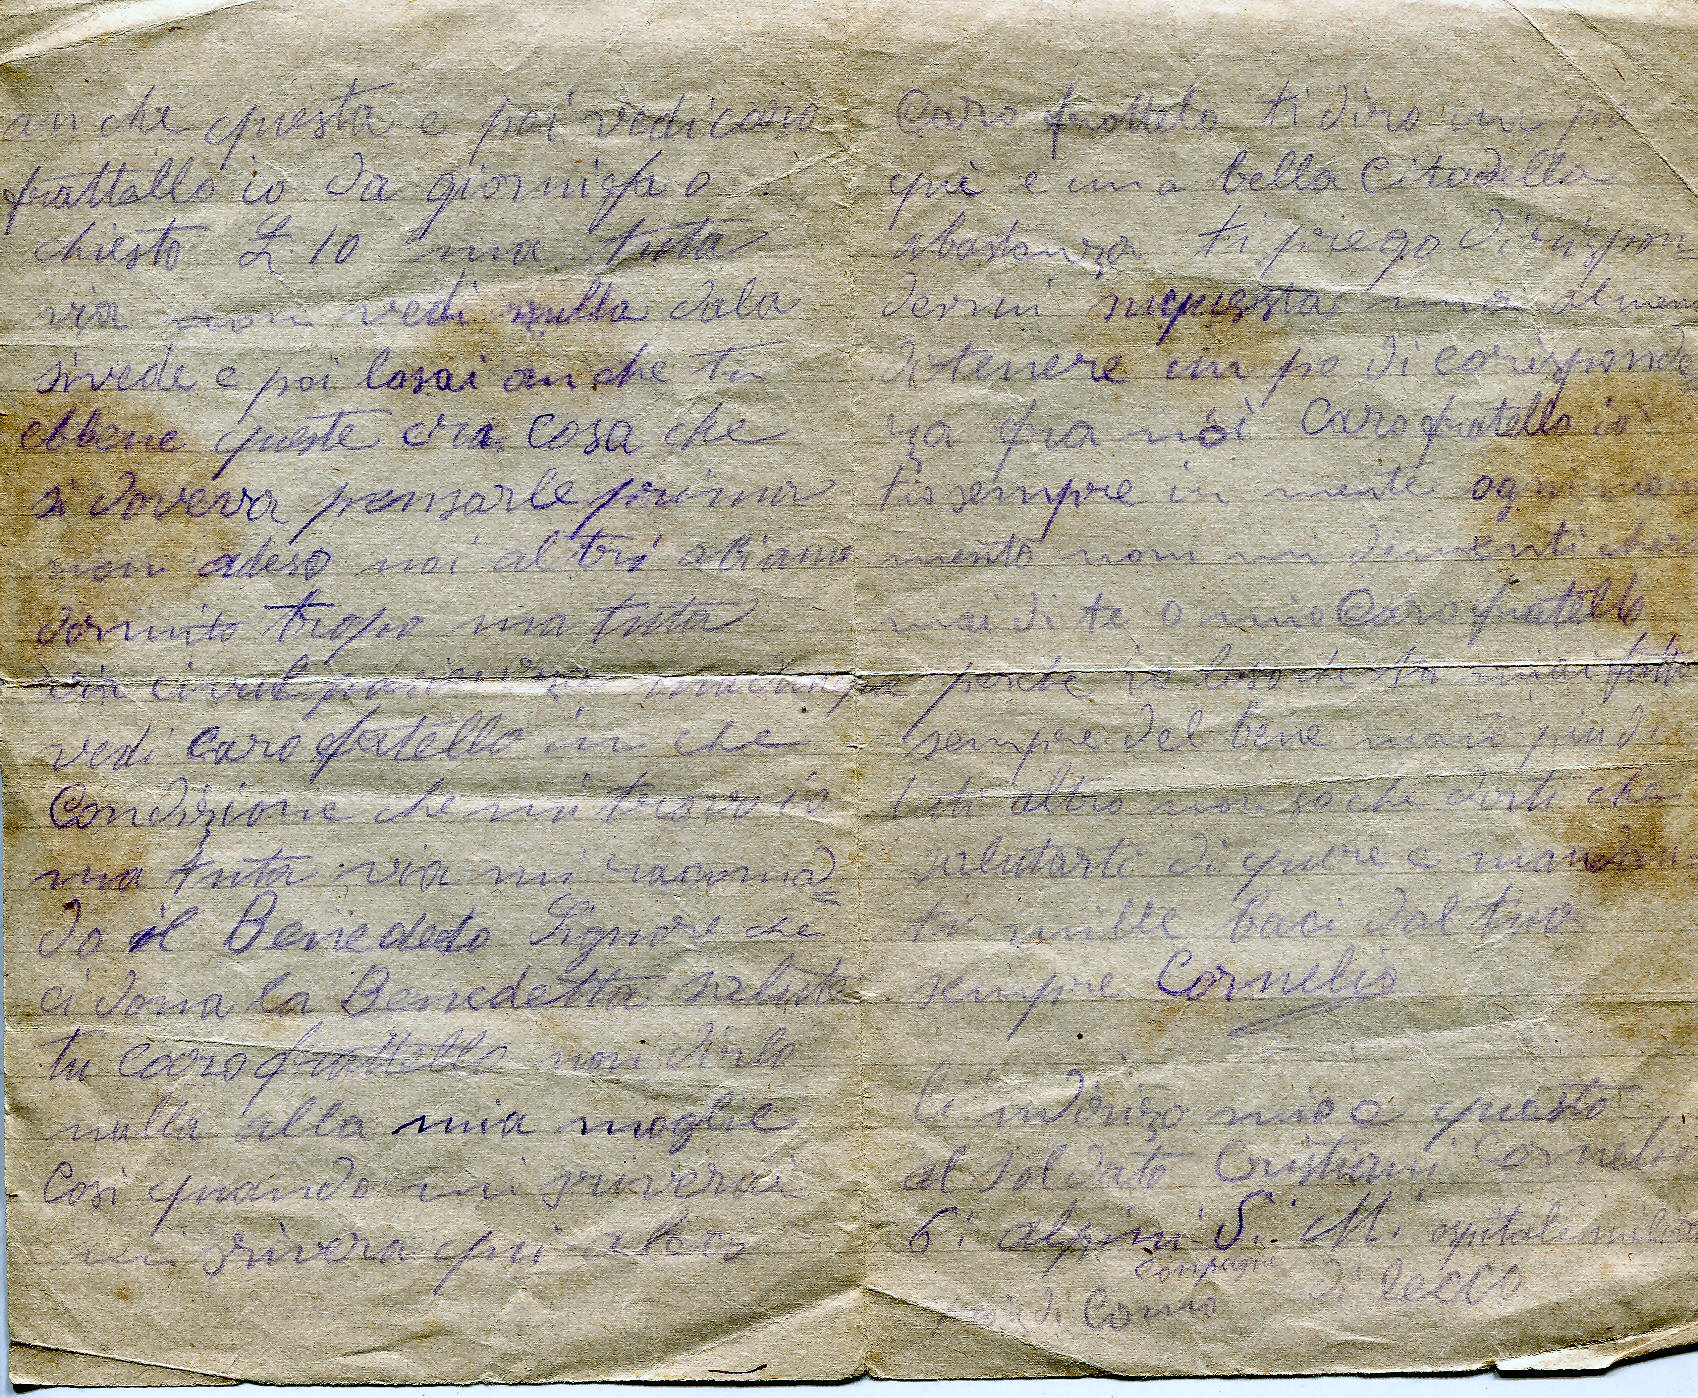 anche questa e poi vedi caro
frattello io da giorni fa o
chiesto £ 10 ma tuta
via non vedi nulla dala
sivede e poi losai anche tu
ebbene queste era cosa che
si doveva pensarle prima
non adeso noi altri abiamo
dormito tropo ma tuta
via ci vul pacienza
vedi caro fratello in che
Condizione che mi trovo io
ma tuta via mi racoma=
do il Benededo Signore che
ci dona la Benedetta salute
tu caro frattello non dirlo
nulla alla mia moglie
Cosi quando mi scriverai
mi srivera qui
Caro frattelo ti diro un po
qui e una bella Citadella
abastanza ti prego di rispon=
dermi suquesta mia almeno
di tenere un po di corisponde
za fra noi Caro fratello io
tio sempre in mente ogni mom
mento non mi dimenticho
mai di te o mio Caro fratello
perche io loso che tu miai fatto
sempre del bene piu di
tuti altro non so che dirti che
salutarti di quore e mandar
ti mille baci dal tuo
sempre Cornelio
Li indirizo mio e questo
al soldato Cristiani Cornelio
6i alpini Si. Mi ospitale milita
Compagnie
di Lecco
di Como